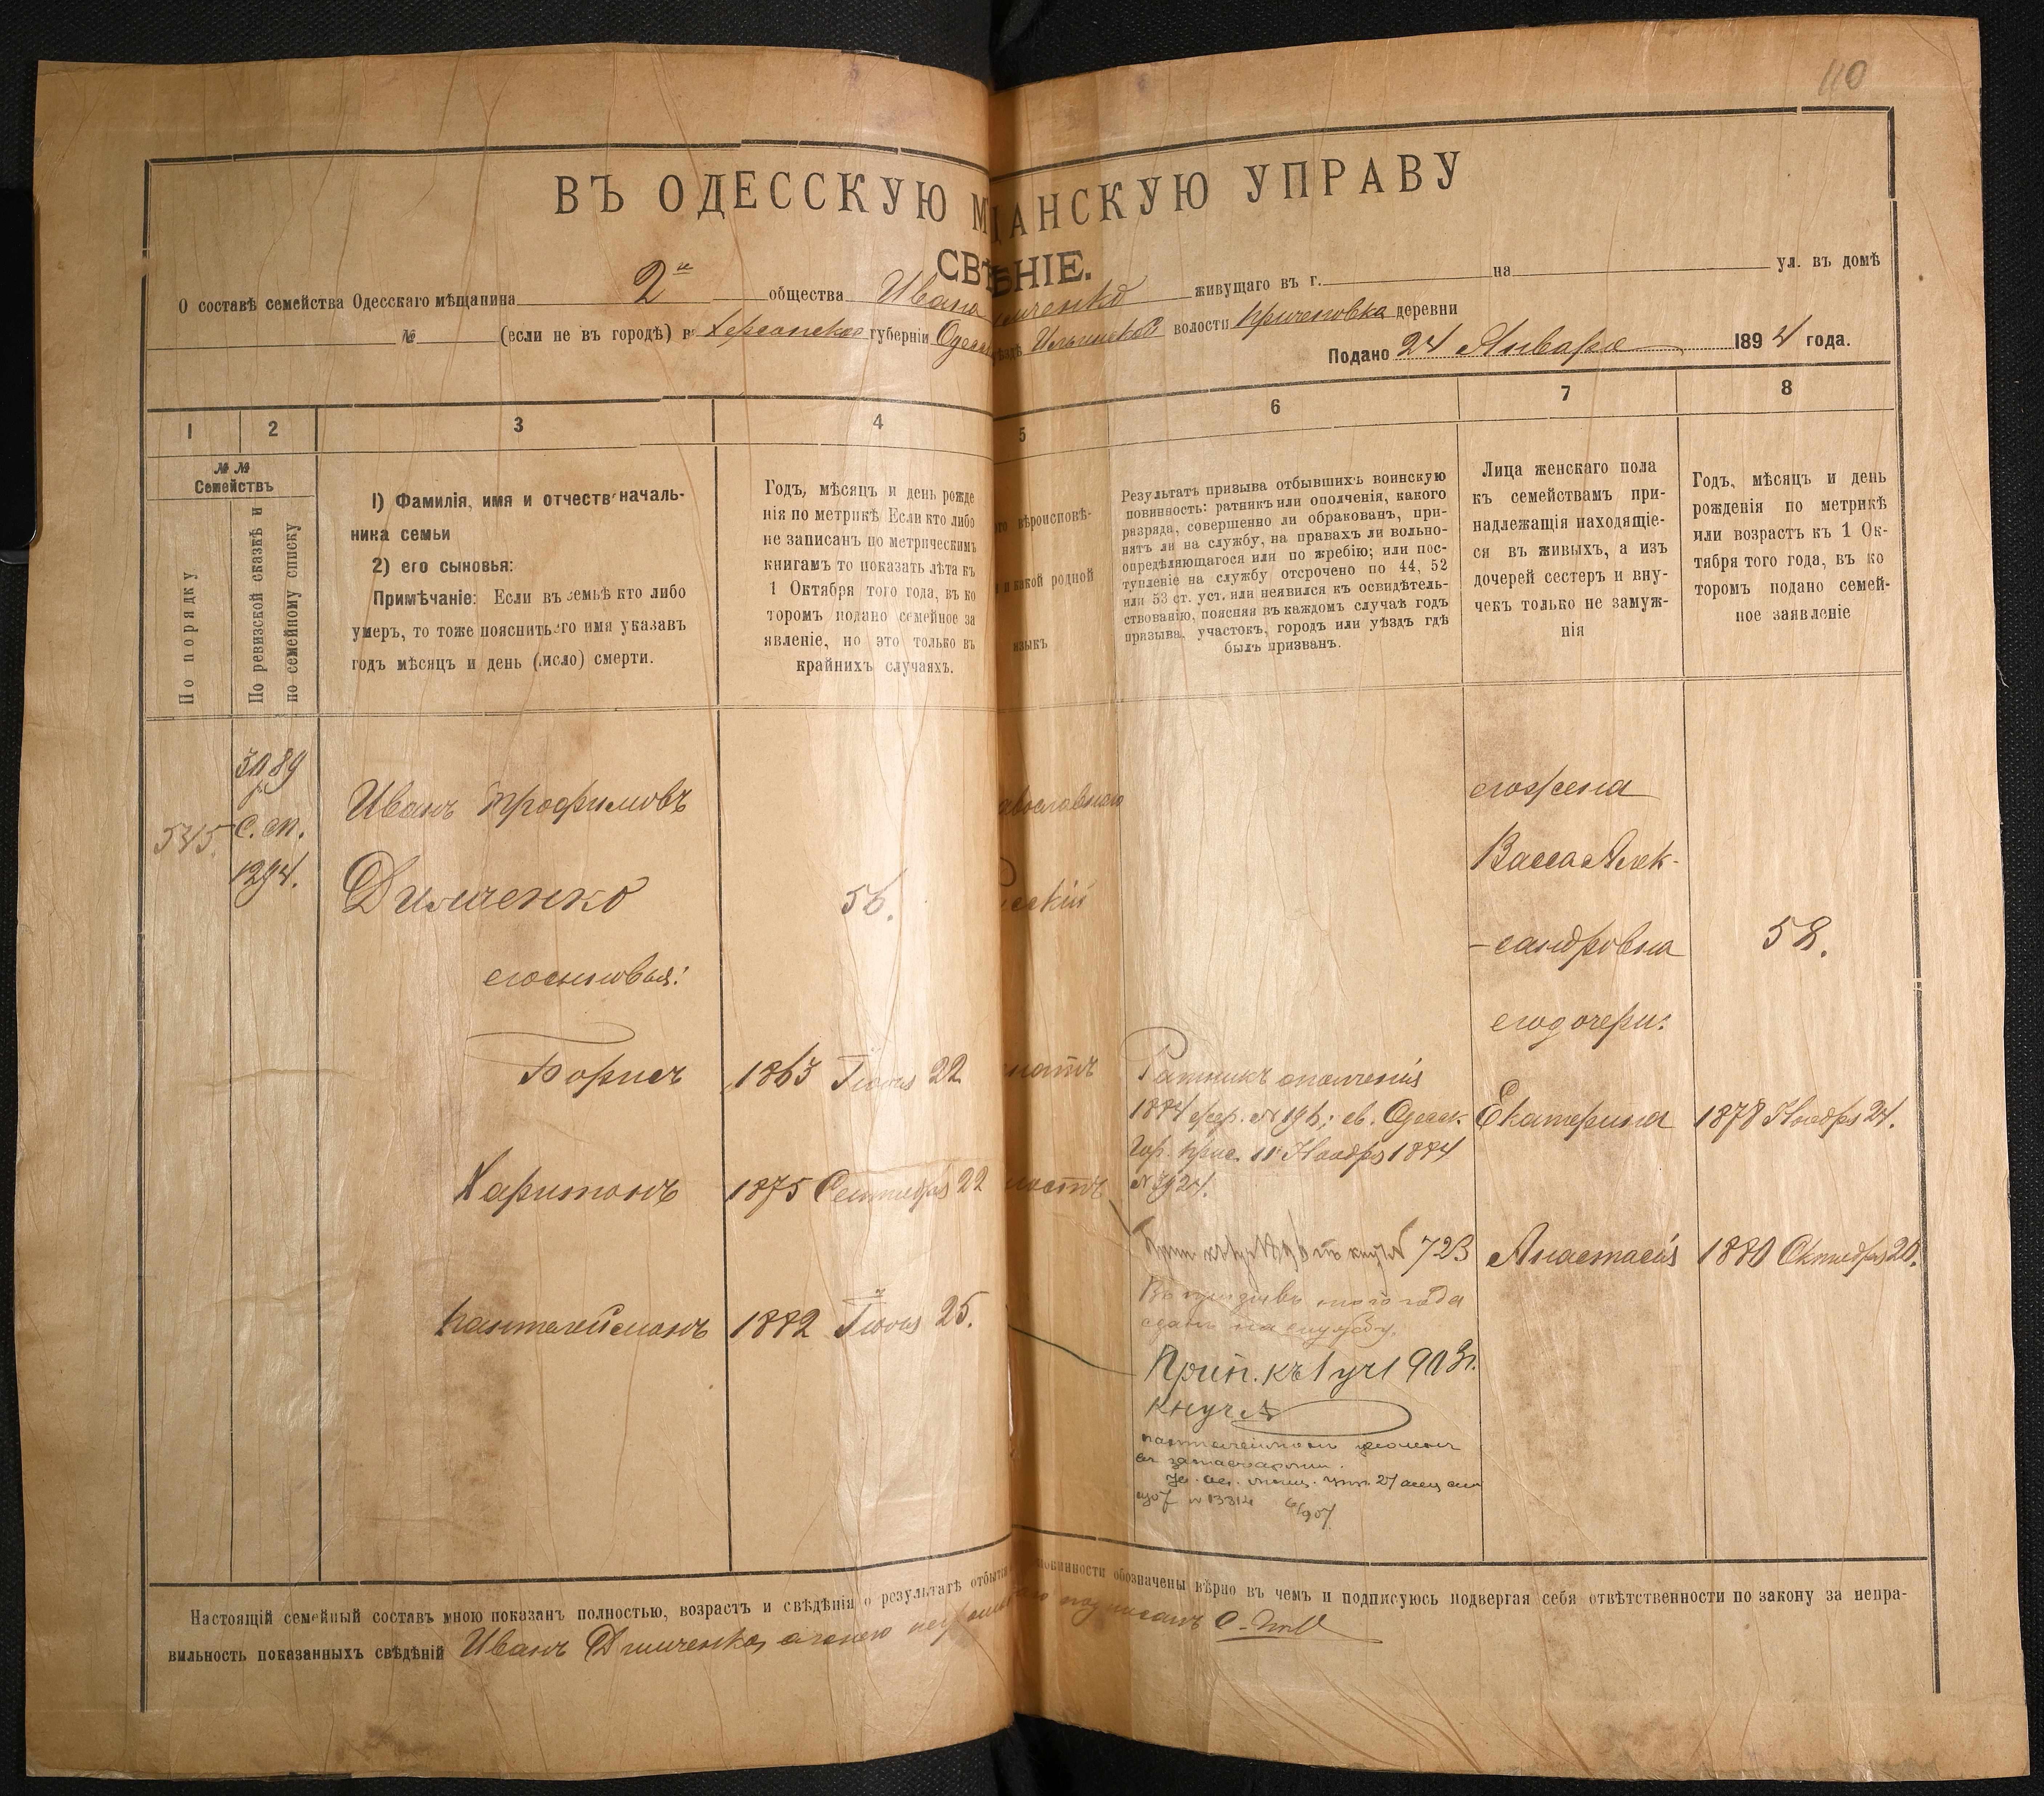 110
ВЪ ОДЕССКУЮ М ЩАНСКУЮ УПРАВУ
СВѢ ѢНІЕ.
О составѣ семейства Одесскаго мѣщанина 2й общества Ивана живущаго въ г. на ул. въ домѣ
№ (если не въ городѣ) в Херсонской губерніи Одесс ѣздѣ волости деревни
Подано 24 Января 1894 года.
1 2 3 4 5 6 7 8
№ №
Семействъ
По порядку
По ревизской сказкѣ и
по семейному списку
1) Фамилія, имя и отчеств началь-
ника семьи
2) его сыновья:
Примѣчаніе: Если въ семьѣ кто либо
умеръ, то тоже пояснить его имя указавъ
годъ мѣсяцъ и день (число) смерти.
Годъ, мѣсяцъ и день рожде
нія по метрикѣ Если кто либо
не записанъ по метрическимъ
книгамъ то показать лѣта къ
1 Октября того года, въ ко
торомъ подано семейное за
явленіе, но это только въ
крайнихъ случаяхъ.
го вѣроисповѣ-
и какой родной
языкъ
Результатъ призыва отбывшихъ воинскую
повинность: ратникъ или ополченія, какого
разряда, совершенно ли обракованъ, при-
нятъ ли на службу, на правахъ ли вольно-
опредѣляющагося или по жребію; или пос-
тупленіе на службу отсрочено по 44, 52
или 53 ст. уст. или неявился къ освидѣтель-
ствованію, поясняя въ каждомъ случаѣ годъ
призыва, участокъ, городъ или уѣздъ гдѣ
былъ призванъ.
Лица женскаго пола
къ семействамъ при-
надлежащія находящіе-
ся въ живыхъ, а изъ
дочерей сестеръ и вну-
чекъ только не замуж-
нія
Годъ, мѣсяцъ и день
рожденія по метрикѣ
или возрастъ къ 1 Ок-
тября того года, въ ко
торомъ подано семей-
ное заявленіе
545
с. сп.
1294.
Иванъ Трофимовъ
Димченко
56.
авославнаго
сскій
его жена
Васса Алек-
-сандровна
58.
его сыновья:
его дочери:
Борисъ
1863 Іюля 22
Ратникъ ополченія
1884 ; св. Одесск.
Гор. прис. 11 Ноября 1884
№ 3924.
Екатерина
1878 Ноября 24.
Харитонъ
1875 Сентября 22
723
Въ призывъ того года
сданъ на службу.
Анастасія
1880 Октября 20.
Пантелеймонъ
1882 Іюля 25.
Прип. къ 1 уч 1903г.
Пантелеймонъ
Настоящій семейный составъ мною показанъ полностью, возрастъ и свѣдѣнія о результатѣ отбыти повинности обозначены вѣрно въ чемъ и подписуюсь подвергая себя отвѣтственности по закону за непра-
вильность показанныхъ свѣдѣній Иванъ Димченко, а за него